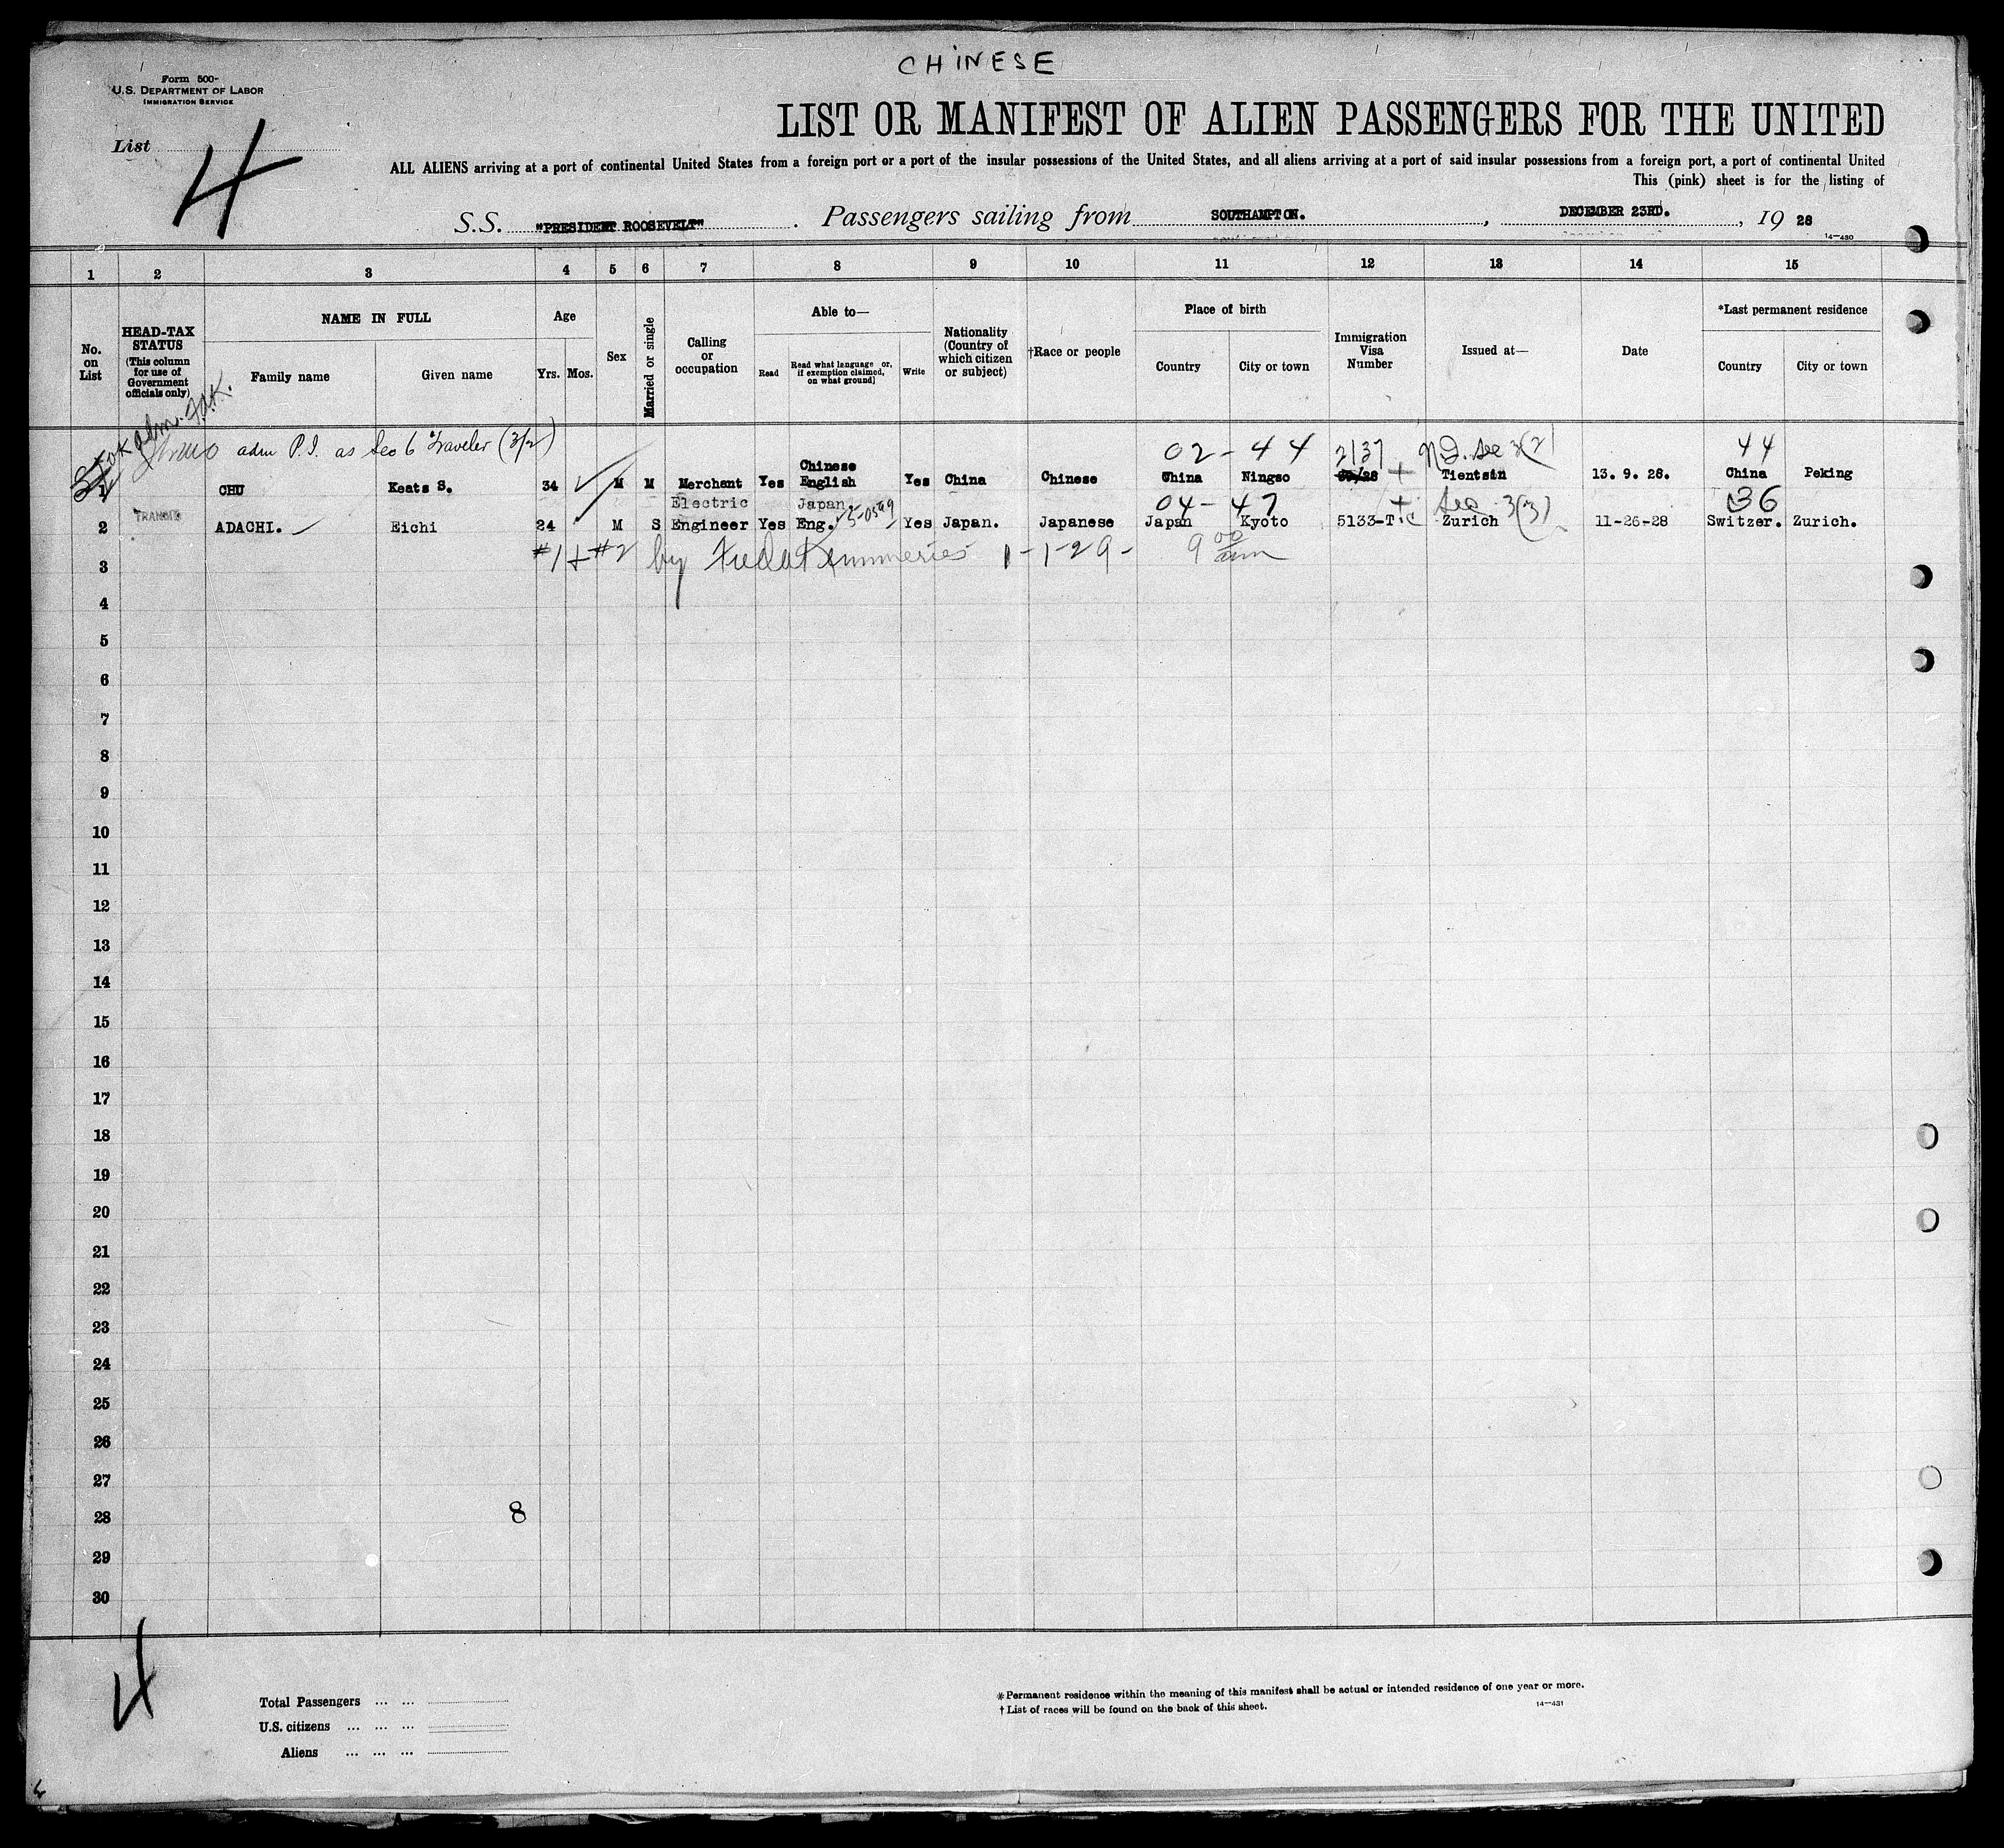 CHINESE
Form 500-
U.S. DEPARTMENT OF LABOR
IMMIGRATION SERVICE
List 4
LIST OR MANIFEST OF ALIEN PASSENGERS FOR THE UNITED
ALL ALIENS arriving at a port of continental United States from a foreign port or a port of the insular possessions of the United States, and all aliens arriving at a port of said insular possessions from a foreign port, a port of continental United
This (pink) sheet is for the listing of
S.S. "PRESIDENT ROOSEVELT" . Passengers sailing from SOUTHAMPTON. , DECEMBER 23RD. , 19 28
14—430
1 2 3 4 5 6 7 8 9 10 11 12 13 14 15
No. on List
HEAD-TAX STATUS (This column for use of Government officials only)
NAME IN FULL
Family name Given name
Age
Yrs. Mos.
Sex
Married or single
Calling or occupation
Able to—
Read Read what language or, if exemption claimed, on what ground] Write
Nationality (Country of which citizen or subject)
†Race or people
Place of birth
Country City or town
Immigration Visa Number
Issued at—
Date
*Last permanent residence
Country City or town
adm P.I. as Sec 6 Traveler (3/2) 02-44 2137 N.Q. See 3(2) 44
1 CHU Keats S. 34 M M Merchant Yes Chinese English Yes China Chinese China Ningso Tientsin 13. 9. 28. China Peking
04-47 See 3(3) 36
TRANSIT
2 ADACHI. Eichi 24 M S Electric Engineer Yes Japan. Eng. Yes Japan. Japanese Japan Kyoto 5133-T. Zurich 11-26-28 Switzer. Zurich.
#1+#2 by 1-1-29- 9 00 am
3
4
5
6
7
8
9
10
11
12
13
14
15
16
17
18
19
20
21
22
23
24
25
26
27
28 8
29
30
4
Total Passengers ... ...
U.S. citizens ... ... ...
Aliens ... ... ...
* Permanent residence within the meaning of this manifest shall be actual or intended residence of one year or more.
† List of races will be found on the back of this sheet.
14—431